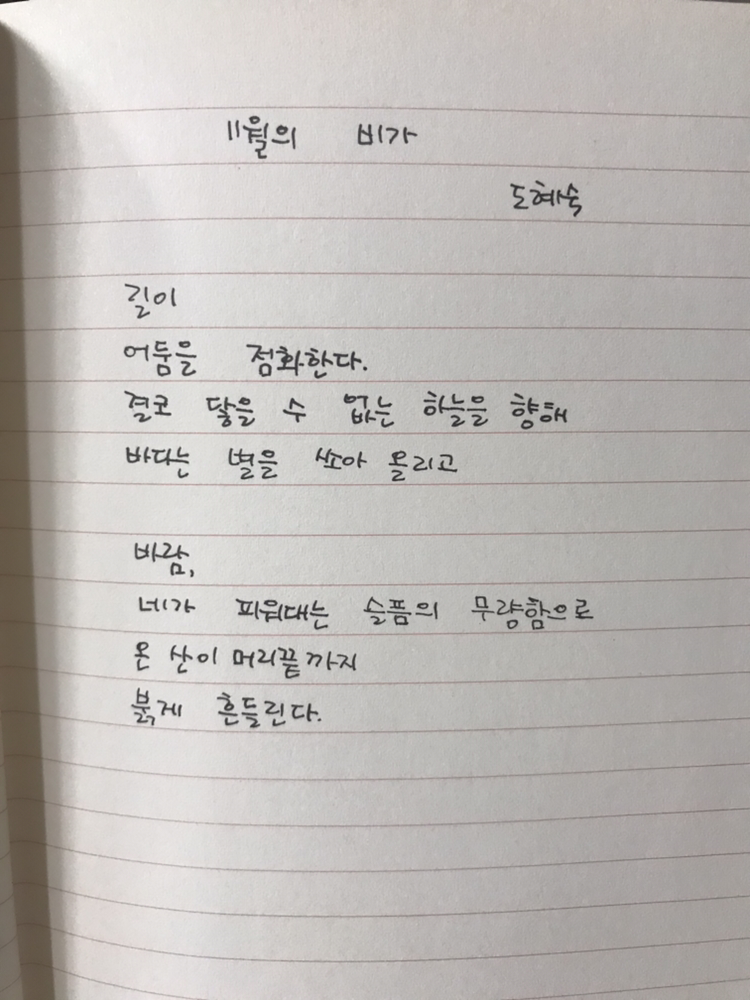 11월의 비가
도혜숙
길이
어둠을 점화한다.
결코 닿을 수 없는 하늘을 향해
바다는 별을 쏘아 올리고
바람,
네가 피워대는 슬픔의 무량함으로
온 산이 머리끝까지
붉게 흔들린다.